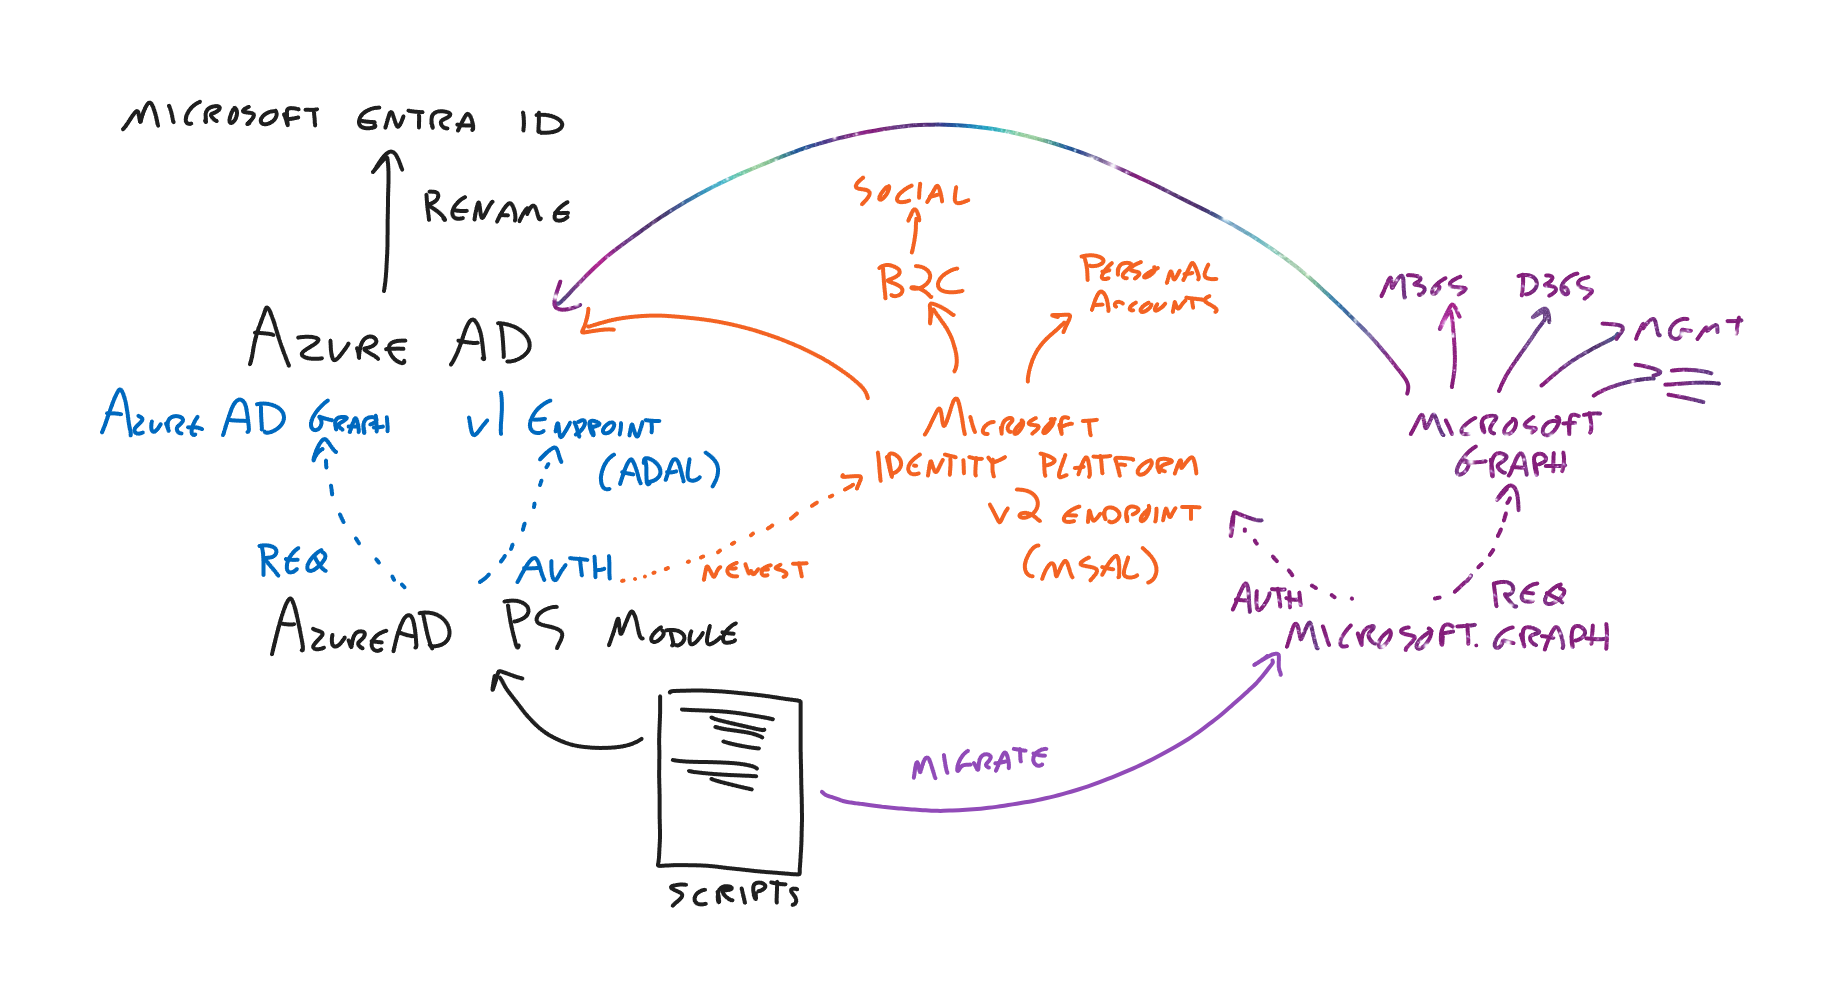 MICROSOFT ENTRA ID
RENAME
AZURE AD
AZURE AD GRAPH
V1 ENDPOINT
(ADAL)
REQ
AUTH
AZUREAD PS MODULE
SCRIPTS
MIGRATE
NEWEST
SOCIAL
B2C
PERSONAL
ACCOUNTS
MICROSOFT
IDENTITY PLATFORM
V2 ENDPOINT
(MSAL)
M365
D365
MGMT
MICROSOFT
GRAPH
AUTH
REQ
MICROSOFT.GRAPH